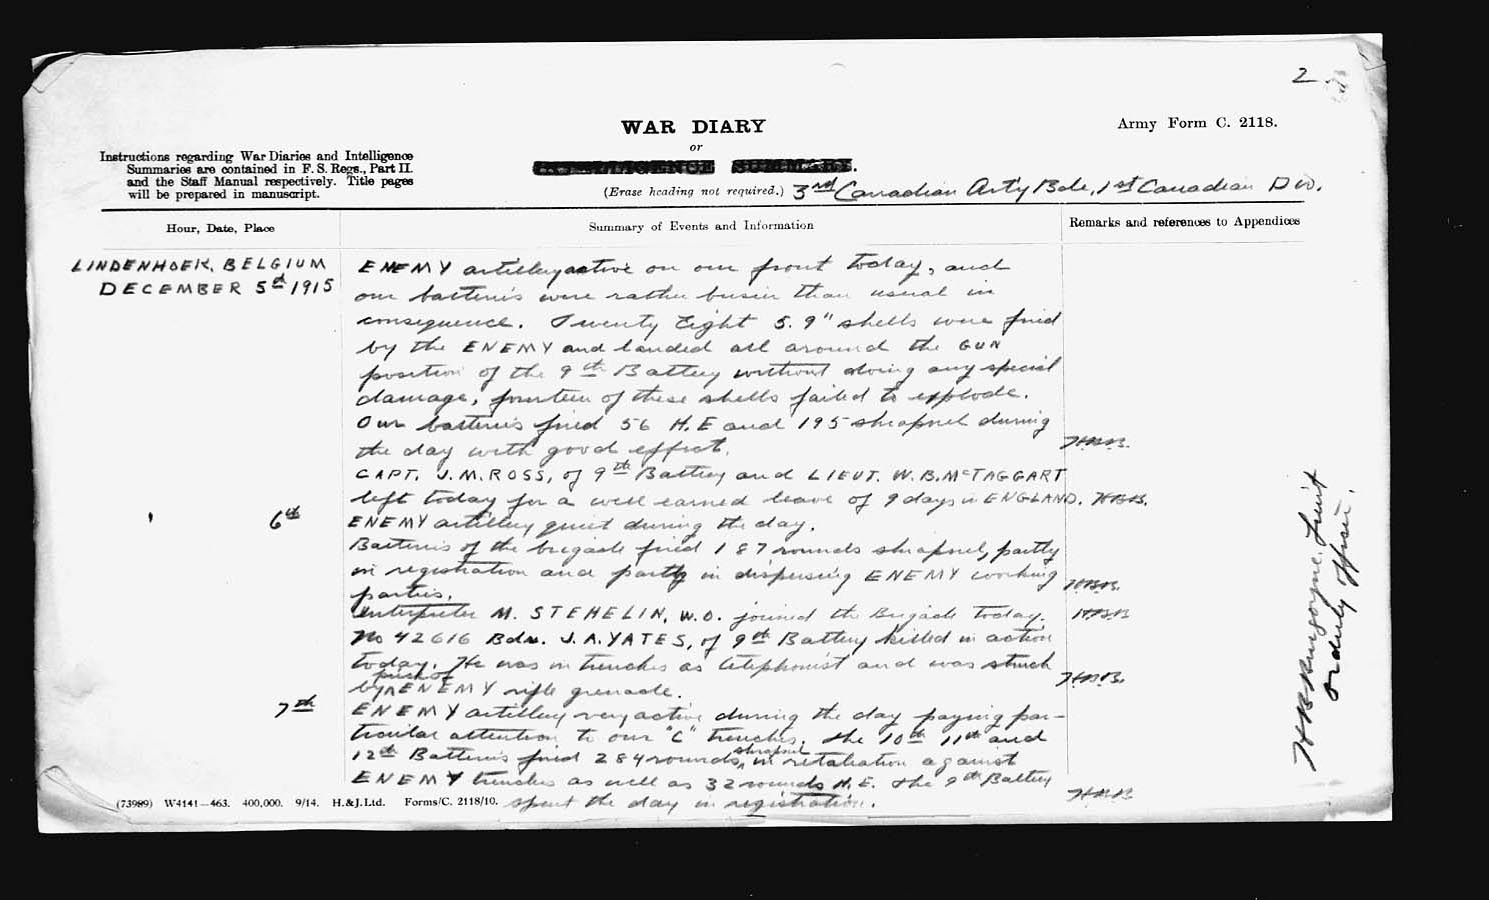 2
WAR DIARY
Army Form C. 2118.
or
INTELLIGENCE SUMMARY.
Instructions regarding War Diaries and Intelligence
Summaries are contained in F. S. Regs., Part II.
and the Staff Manual respectively. Title pages
will be prepared in manuscript.
(Erase heading not required.) 3rd Canadian Arty Bde, 1st Canadian Div.
Hour, Date, Place
Summary of Events and Information
Remarks and references to Appendices
LINDENHOEK, BELGIUM
DECEMBER 5th 1915
ENEMY artillery active on our front today, and
our batteries were rather busier than usual in
consequence. Twenty Eight 5.9" shells were fired
by the ENEMY and landed all around the GUN
position of the 9th Battery without doing any special
damage, fourteen of these shells failed to explode.
Our batteries fired 56 H.E and 195 shrapnel during
the day with good effect. HBB.
CAPT. J.M. ROSS, of 9th Battery and LIEUT. W.B. McTAGGART
left today for a well earned leave of 9 days in ENGLAND. HBB.
6th ENEMY artillery quiet during the day.
Batteries of the brigade fired 187 rounds shrapnel, partly
in registration and partly in dispersing ENEMY working
parties. HBB.
Interpreter M. STEHELIN, W.O. joined the Brigade today. HBB
No 42616 Bdr. J.A. YATES, of 9th Battery killed in action
today. He was in trenches as telephonist and was struck
by piece of ENEMY rifle grenade. HBB.
7th ENEMY artillery very active during the day paying par-
ticular attention to our "C" trenches. The 10th 11th and
12th Batteries fired 284 rounds shrapnel in retaliation against
ENEMY trenches as well as 32 rounds H.E. The 9th Battery
spent the day in registration. HBB
(73989) W4141—463. 400,000. 9/14. H.&J.Ltd. Forms/C. 2118/10.
Lieut
Orderly officer.